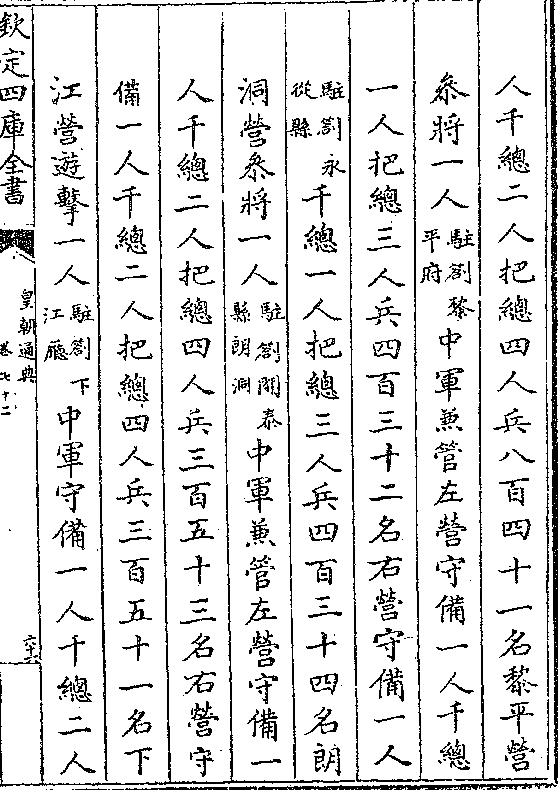 人千總二人把總四人兵八百四十一名黎平營
叅將一人駐劄黎平府中軍兼管左營守備一人千總
一人把總三人兵四百三十二名右營守備一人
駐劄永從縣千總一人把總三人兵四百三十四名朗
洞營叅將一人駐劄開泰縣朗洞中軍兼管左營守備一
人千總二人把總四人兵三百五十三名右營守
備一人千總二人把總四人兵三百五十一名下
江營遊擊一人駐劄下江廳中軍守備一人千總二人
欽定四庫全書
皇朝通典
卷七十二
六十六